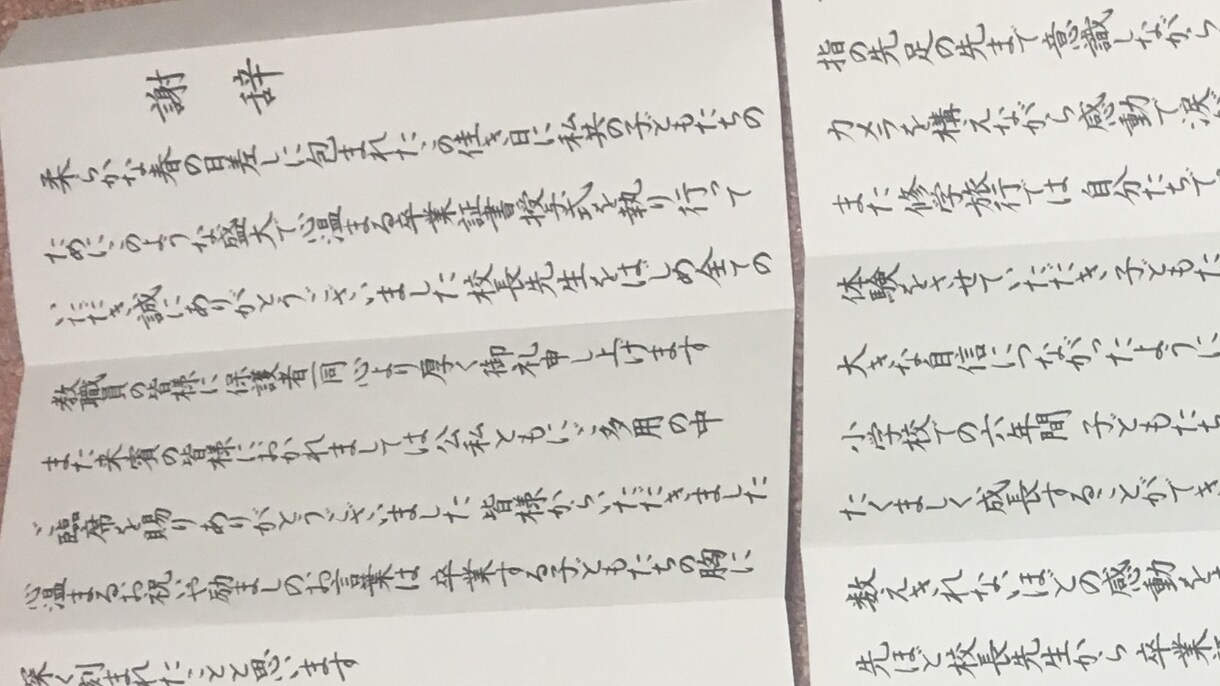 謝辞
柔らかな春の日差しに包まれたこの佳き日に私共の子どもたちの
ためにこのような盛大で心温まる卒業証書授与式を執り行って
いただき誠にありがとうございました校長先生をはじめ全ての
教職員の皆様に保護者一同心より厚く御礼申し上げます
また来賓の皆様におかれましては公私ともにご多用の中
ご臨席を賜りありがとうございました皆様からいただきました
心温まるお祝いや励ましのお言葉は卒業する子どもたちの胸に
深く刻まれたことと思います
指の先足の先まで意識しながら
カメラを構えながら感動で涙
また修学旅行では自分たちで
体験をさせていただき子どもた
大きな自信につながったように
小学校での六年間子どもたち
たくましく成長することができ
数えきれないほどの感動を
先ほど校長先生から卒業